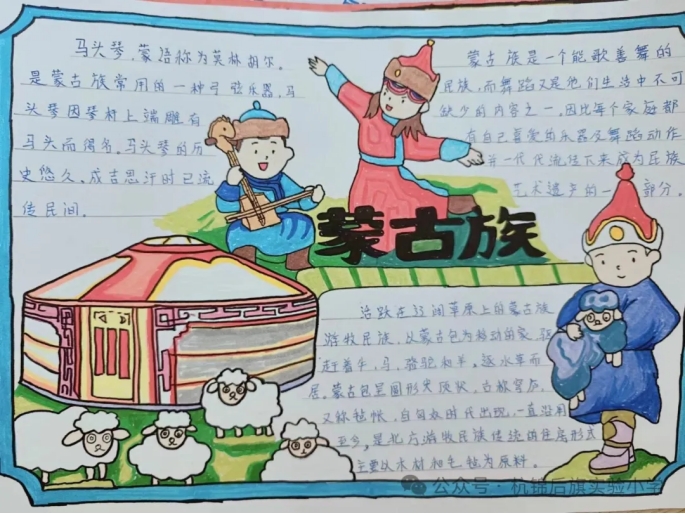 马头琴,蒙语称为莫林胡尔。
是蒙古族常用的一种弓弦乐器,马
头琴因琴杆上端雕有
马头而得名。马头琴的历
史悠久、成吉思汗时已流
传民间。
蒙古族是一个能歌善舞的
民族,而舞蹈又是他们生活中不可
缺少的内容之一。因此每个家每都
有自己喜爱的乐器及舞蹈动作
并一代代流传下来成为民族
艺术遗产的一部分。
蒙古族
活跃在33间草原上的蒙古族
游牧民族,从蒙古包为移动的家,
赶着牛、马、骆驼和羊。逐水草而
居。蒙古包呈圆形尖顶状,古称穹庐,
又称毡帐,自匈奴时代出现,一直沿用
至今,是北方游牧民族传统的住房形式
主要以木材和毛毡为原料。
公众号·杭锦后旗实验小学